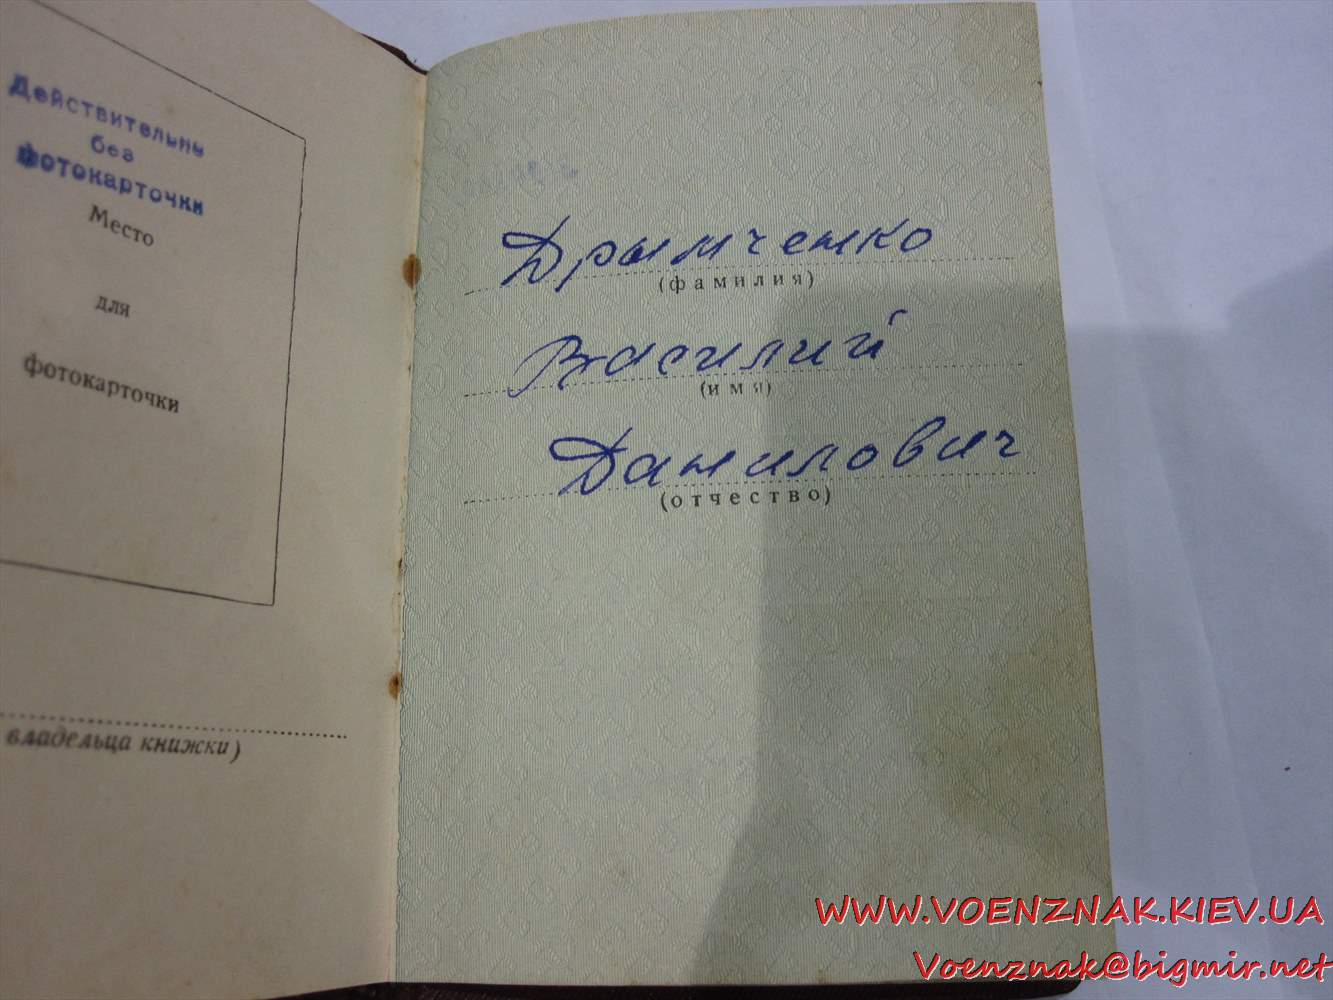 Действительны
без
фотокарточки
Место
для
фотокарточки
владельца книжки)
Дрымченко
(фамилия)
Василий
(имя)
Данилович
(отчество)
WWW.VOENZNAK.KIEV.UA
Voenznak@bigmir.net